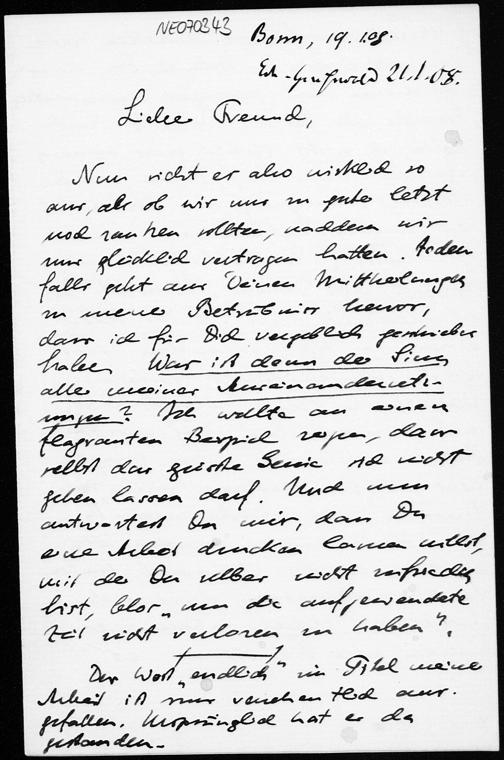 NE070343
Bonn, 19. 1.08.
21.1.08.
Lieber Freund,
Nun sieht es also wirklich so
aus, als ob wir uns zu guter letzt
noch zanken sollten, nachdem wir
uns glücklich vertragen hatten. Jeden
falls geht aus Deinen Mittheilungen
zu meiner Betrübniss hervor,
dass ich für Dich vergeblich geschrieben
habe. Was ist denn der Sinn
aller meiner Auseinandersetz-
ungen? Ich wollte an einem
flagranten Beispiel zeigen, dass
selbst das grösste Genie sich nicht
gehen lassen darf. Und nun
antwortest Du mir, dass Du
eine Arbeit drucken lassen willst,
mit der Du selber nicht zufrieden
bist, blos „um die aufgewendete
Zeit nicht verloren zu haben“.
Das Wort „endlich“ im Titel meiner
Arbeit ist nur versehentlich aus-
gefallen. Ursprünglich hat es da
gestanden.